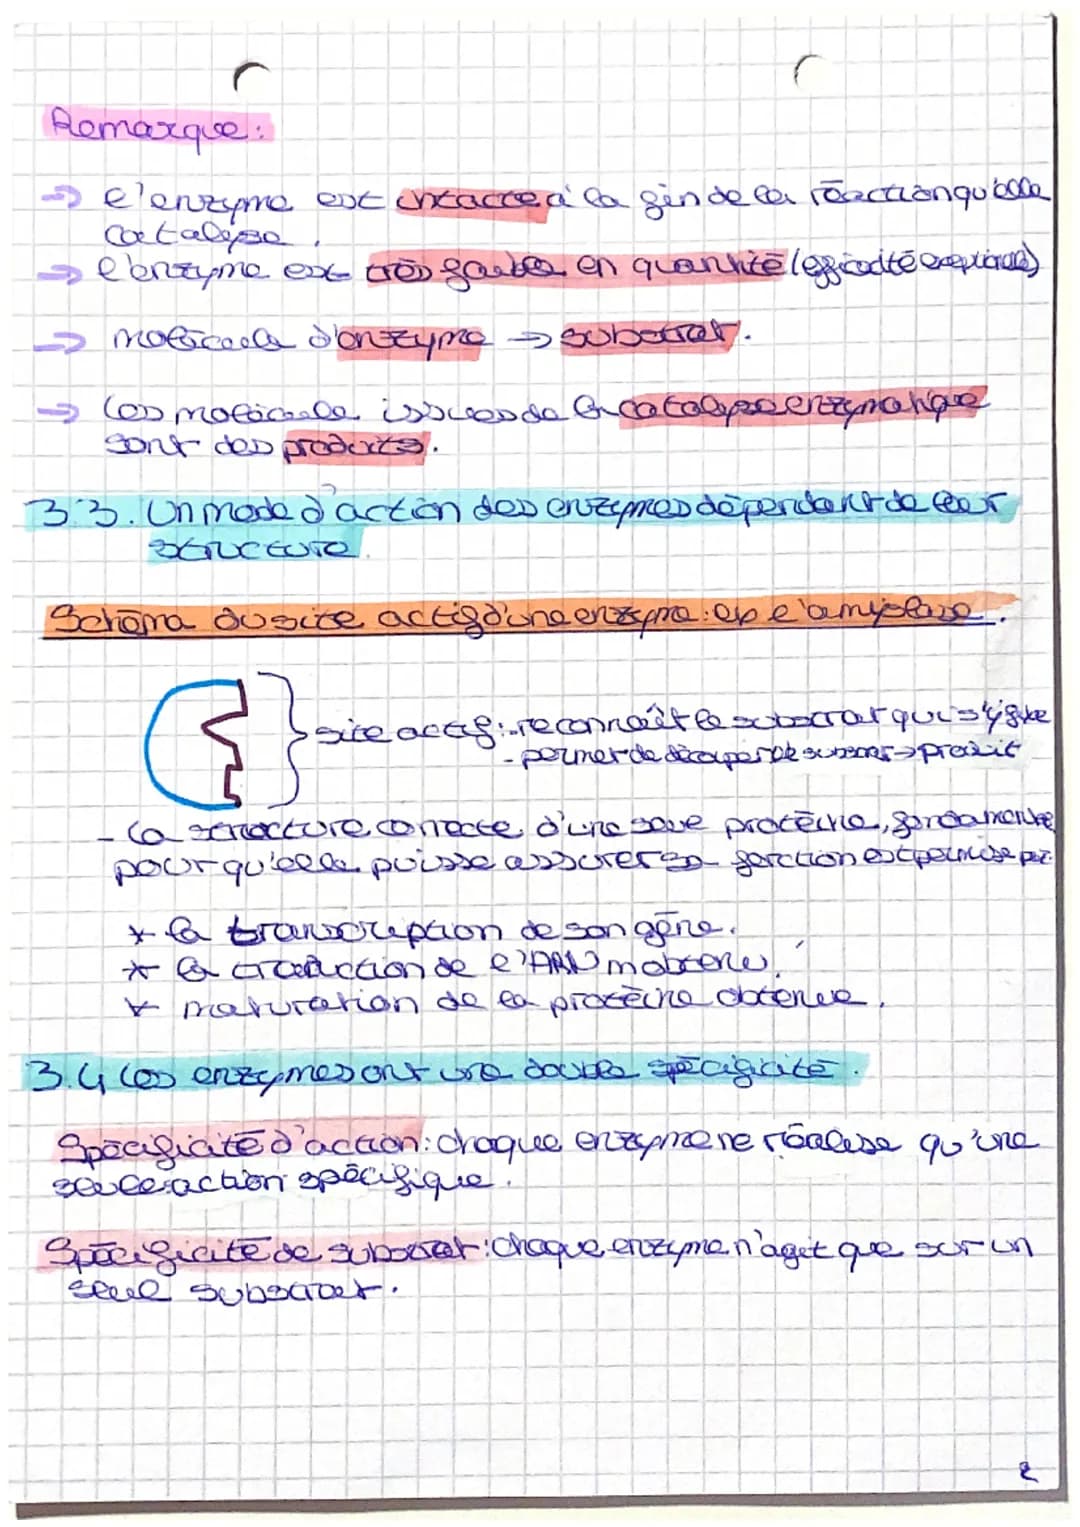 Remarque :
→ l'enzyme est intacte à la fin de la réaction qu'elle
catalyse.
→ l'enzyme est très faible en quantité (efficacité
→ molécule d'enzyme → substrat.
→ les molécule issues de la catalyse enzymatique
sont des products.
3.3. Un mode d'action des enzymes dépendant de leur
structure.
Schéma du site actif d'une enzyme : ex l'amylase.
site actif : - reconnaît le substrat qui s'y fixe
- permet de découper le substrat → produit
- la structure correcte d'une seule protéine, fondamentale
pour qu'elle puisse assurer sa fonction est permise par :
* la transcription de son gène.
* la traduction de l'ARN m obtenu.
* maturation de la protéine obtenue.
3.4 les enzymes ont une double spécificité.
Spécificité d'action : chaque enzyme ne réalise qu'une
seule action spécifique.
Spécificité de substrat : chaque enzyme n'agit que sur un
seul substrat.
2